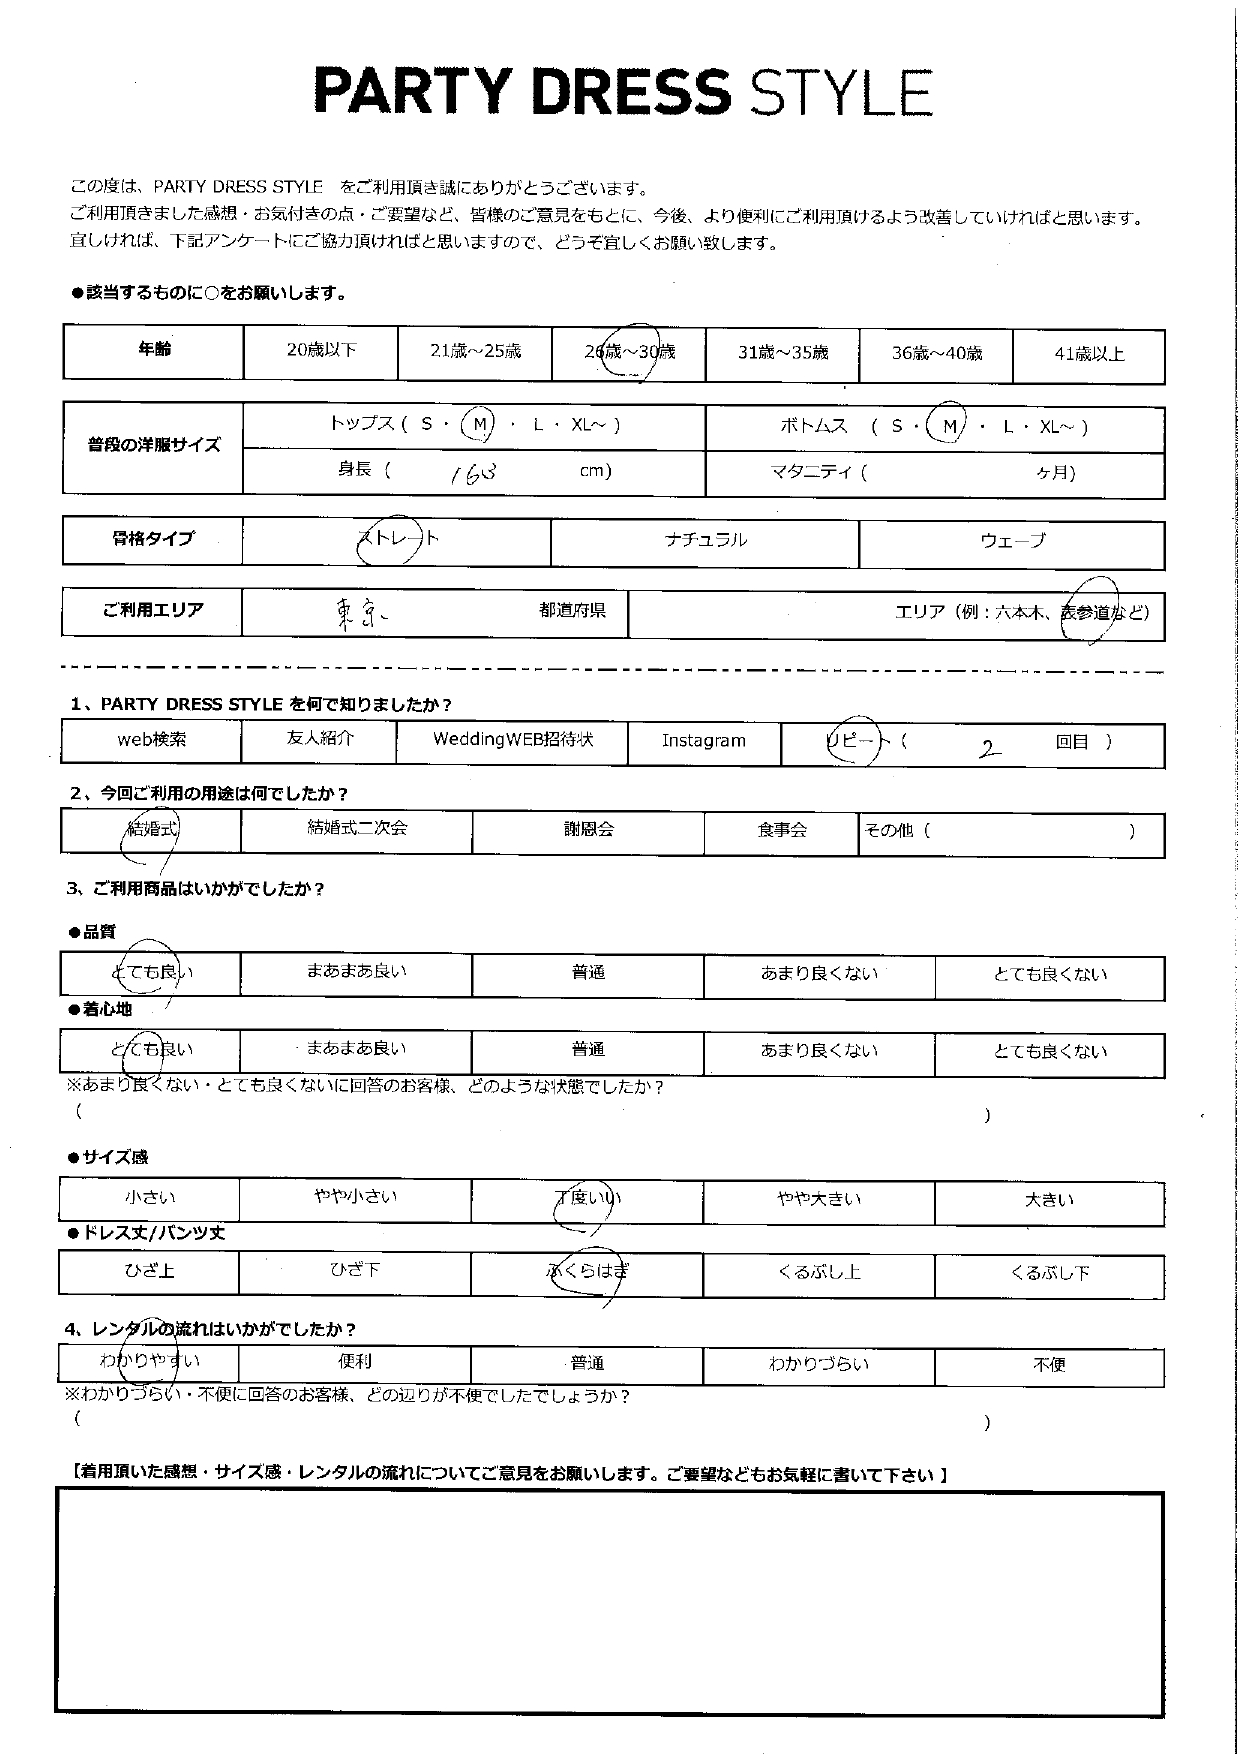 PARTY DRESS STYLE
この度は、PARTY DRESS STYLE をご利用頂き誠にありがとうございます。
ご利用頂きました感想・お気付きの点・ご要望など、皆様のご意見をもとに、今後、より便利にご利用頂けるよう改善していければと思います。
宜しければ、下記アンケートにご協力頂ければと思いますので、どうぞ宜しくお願い致します。
●該当するものに○をお願いします。
年齢 20歳以下 21歳～25歳 26歳～30歳 31歳～35歳 36歳～40歳 41歳以上
普段の洋服サイズ
トップス ( S ・ M ・ L ・ XL～ ) ボトムス ( S ・ M ・ L ・ XL～ )
身長 ( 163 cm) マタニティ ( ヶ月)
骨格タイプ ストレート ナチュラル ウェーブ
ご利用エリア 東京 都道府県 エリア（例：六本木、表参道など）
1、PARTY DRESS STYLE を何で知りましたか？
web検索 友人紹介 WeddingWEB招待状 Instagram リピート ( 2 回目 )
2、今回ご利用の用途は何でしたか？
結婚式 結婚式二次会 謝恩会 食事会 その他 ( )
3、ご利用商品はいかがでしたか？
●品質
とても良い まあまあ良い 普通 あまり良くない とても良くない
●着心地
とても良い まあまあ良い 普通 あまり良くない とても良くない
※あまり良くない・とても良くないに回答のお客様、どのような状態でしたか？
( )
●サイズ感
小さい やや小さい 丁度いい やや大きい 大きい
●ドレス丈/パンツ丈
ひざ上 ひざ下 ふくらはぎ くるぶし上 くるぶし下
4、レンタルの流れはいかがでしたか？
わかりやすい 便利 普通 わかりづらい 不便
※わかりづらい・不便に回答のお客様、どの辺りが不便でしたでしょうか？
( )
【着用頂いた感想・サイズ感・レンタルの流れについてご意見をお願いします。ご要望などもお気軽に書いて下さい 】